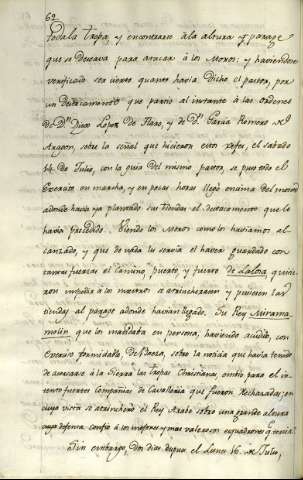 62
toda la tropa, y encontraron a la altura y parage
que se deseava para atacar à los Moros; y haviendose
verificado ser cierto quanto havia dicho el pastor, por
un destacamento que partio al instante à las ordenes
de Dn. Diego Lopez de Haro, y de Dn. Garcia Romero de
Aragon, sobre la señal que hicieron estos Xefes, el sabado
14. de Julio, con la guia del mismo pastor, se puso todo el
Exercito en marcha, y en pocas horas llegó encima del monte
adonde havia ya plantado sus tiendas el destacamento que le
havia precedido. Viendo los Moros como los haviamos al-
canzado, y que de nada les servia el haver guardado con
tantas fuerzas el camino, puerto, y de Lalosa, quisie-
ron impedir à los nuestros se atrincherasen y pusiesen las
tiendas al parage adonde havian llegado. Su Rey Miramo-
molin que los mandaba en persona, haviendo acudido, con
Exercito formidable, de Baeza, sobre la noticia que havia tenido
de acercarse à la Sierra las tropas Christianas, embio para el in-
tento fuertes Compañias de Cavalleria que fueron rechazadas; en
cuya vista se atrincheró el Rey Arabe sobre una grande altura
cuya defensa confió à los mejores y mas valerosos esquadrones que tenia.
Sin embargo, dos dias despues el Lunes 16. de Julio,